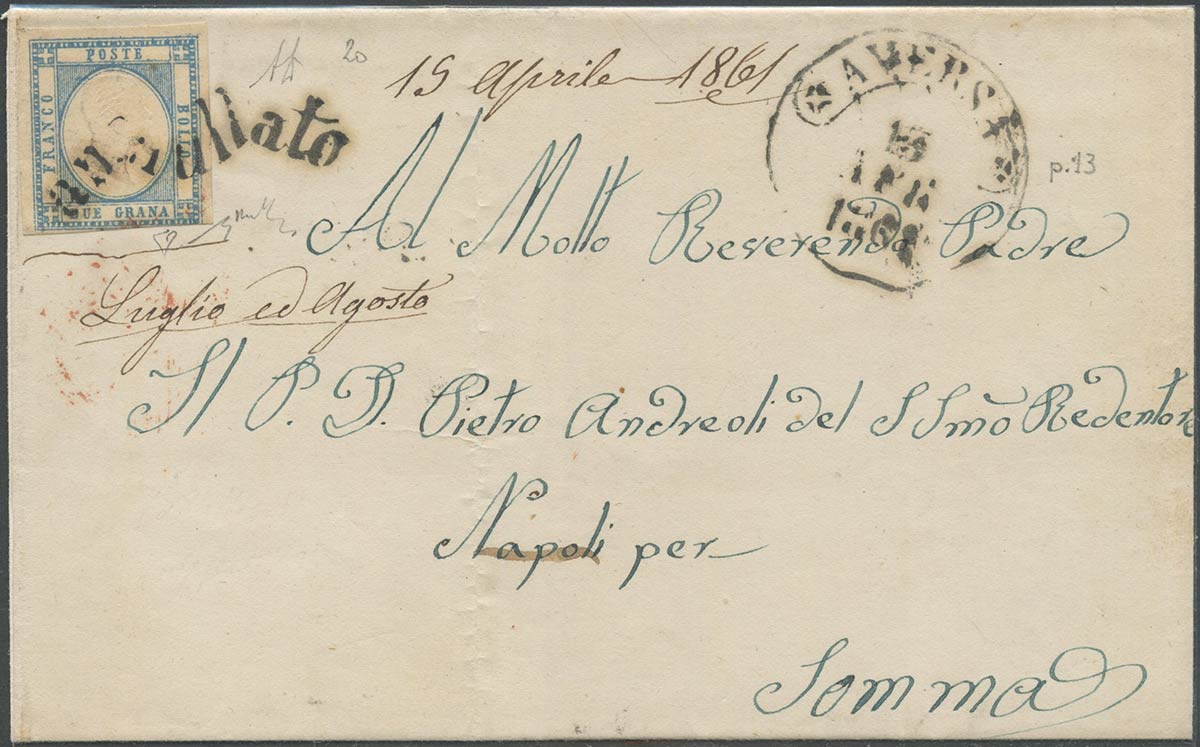 POSTE
FRANCO
BOLLO
DUE GRANA
annullato
20
15 Aprile 1861
AVERSA
15
APR
p.13
Al Molto Reverendo Padre
Luglio ed Agosto
Il P. D. Pietro Andreoli del SSmõ Redentore
Napoli per
Somma